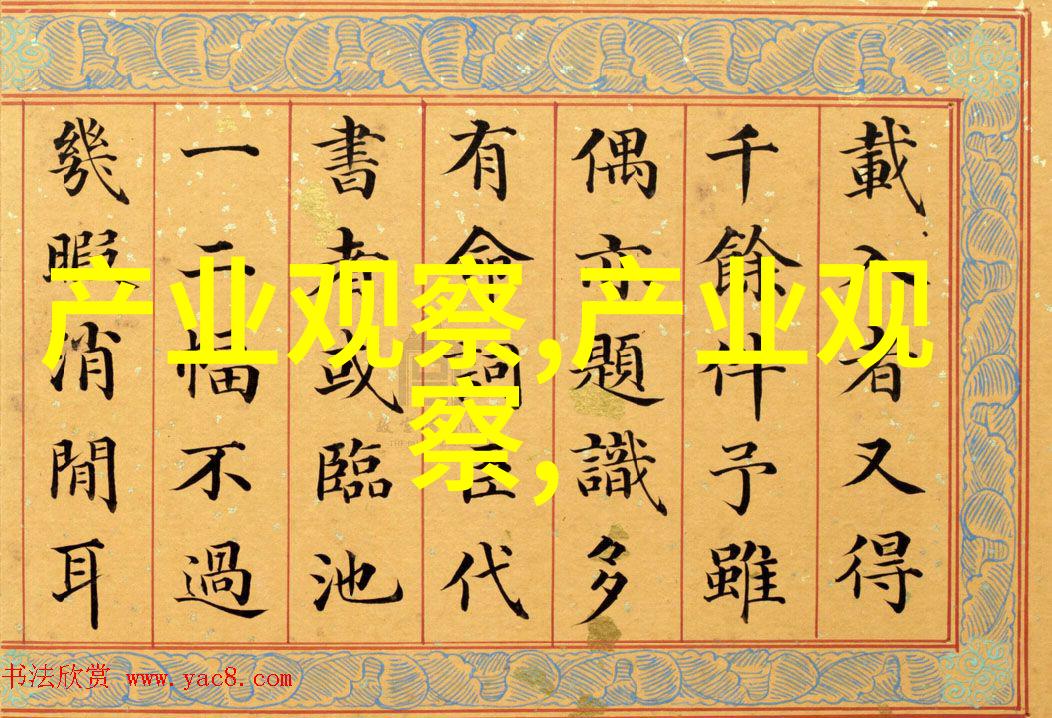 載入者又得
千餘件予雖
偶亦題識多
有命詞臣代
書者或臨池
一二幅不過
幾暇消閒耳
产业观察,产业观
察,
书法欣赏 www.yac8.com